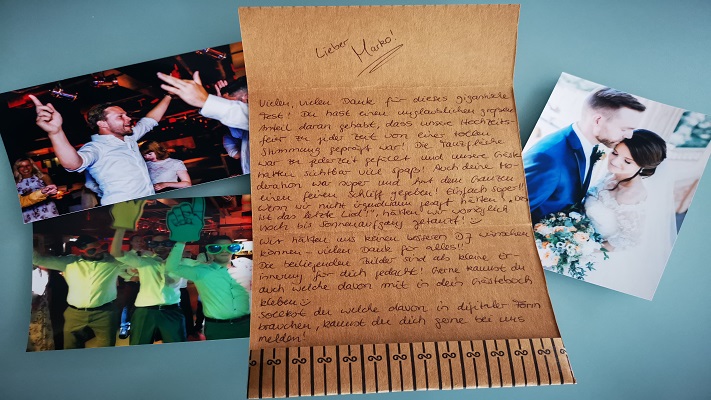 Lieber
Marko!
Vielen, vielen Dank für dieses gigantische
Fest! Du hast einen unglaublichen großen
Anteil daran gehabt, dass unsere Hochzeits-
feier zu jeder Zeit von einer tollen
Stimmung geprägt war! Die Tanzfläche
war zu jederzeit gefüllt und unsere Gäste
hatten sichtbar viel Spaß! Auch deine Mo-
deration war super und hat dem Ganzen
einen feinen Schliff gegeben! Einfach super!!
Wenn wir nicht irgendwann gesagt hätten "Das
ist das letzte Lied!", hätten wir womöglich
noch bis Sonnenaufgang getanzt!
Wir hätten uns keinen besseren DJ wünschen
können - vielen Dank für alles!!!
Die beiliegenden Bilder sind als kleine Er-
innerung für dich gedacht! Gerne kannst du
auch welche davon mit in dein Gästebuch
kleben
Solltest du welche davon in digitaler Form
brauchen, kannst du dich gerne bei uns
melden!